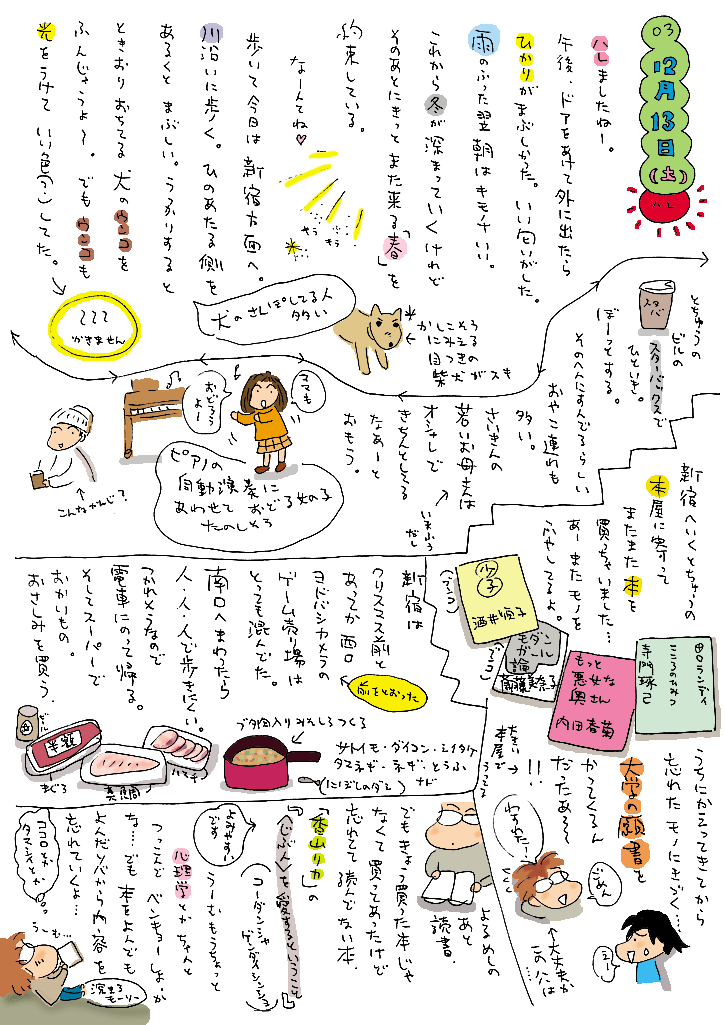 03
12月13日(土)
ハレ
ハレましたねー。
午後、ドアをあけて外に出たら
ひかりがまぶしかった。いい匂いがした。
雨のふった翌朝はキモチいい。
これから冬が深まっていくけれど
そのあとにきっとまた来る「春」を
約束している。
なーんてね♥
歩いて今日は新宿方面へ。
川沿いに歩く。ひのあたる側を
あるくとまぶしい。うっかりすると
ときおりおちてる犬のウンコを
ふんじゃうよ〜。でもウンコも
光をうけていい色(?)してた。
かきません
犬のさんぽしてる人
多い
かしこそう
にみえる
目つきの
柴犬がスキ
スタバ
とちゅうの
ビルの
スターバックスで
ひといき。
ぼーっとする。
そのへんにすんでるらしい
おやこ連れも
多い。
さいきんの
若いお母さんは
オシャレで
きちんとしてる
なぁーと
おもう。
いまふう
だし
ママも
おどろう
よ!
ピアノの
自動演奏に
あわせておどる女の子
たのしそう
こんなかんじ?
新宿へいくとちゅうの
本屋に寄って
またまた本を
買っちゃいました…
あーまたモノを
ふやしてるよ。
少子
酒井順子
モダン
ガール
論
斎藤美奈子
もっと
悪女な
奥さん
内田春菊
田口ランディ
寺門琢己
こころのひみつ
新宿は
クリスマス前と
あってか西口
ヨドバシカメラの
ゲーム売り場は
とっても混んでた。
前をとおった
南口へまわったら
人・人・人で歩きにくい。
つかれそうなので
電車にのって帰る。
そしてスーパーで
おかいもの。
おさしみを買う。
ビール
半額
まぐろ
真鯛
ハマチ
ブタ肉入りみそしるつくる
サトイモ・ダイコン・シイタケ
タマネギ・ネギ・とうふ
(にぼしのダシ) ナド
うちにかえってきてから
忘れたモノにきづく…
大学の願書を
かってくるん
だったあ〜
!!
わすれたー!
ごめん
大丈夫か
この人は
……
えー
よるめしの
あと
読書。
でもきょう買った本じゃ
なくて買ってあったけど
忘れてて読んでない本。
「香山リカ」の
〈じぶん〉を愛するということ
(コーダンシャ
ゲンダイシンショ)
よみやすい
です
うーむもうちょっと
心理学とかちゃんと
つっこんでベンキョーしょーか
な…でも本をよんでも
よんだソバから内容を
忘れていくよ…
うーむ…